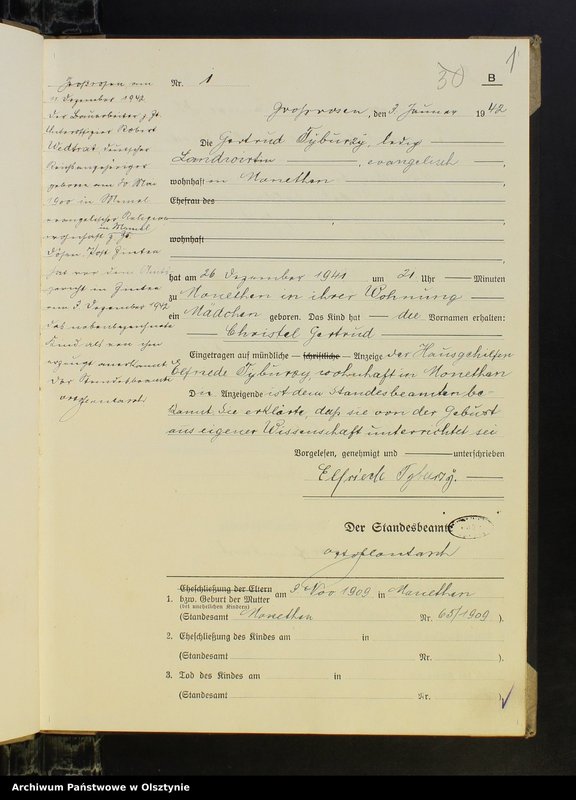 1
30
B
Nr. 1
Großrosen, den 3. Januar 1942
Die Gertrud Tyburzy, ledig
Landwirtin, evangelisch,
wohnhaft in Monethen,
Ehefrau des
wohnhaft
hat am 26. Dezember 1941 um 21 Uhr Minuten
zu Monethen in ihrer Wohnung
ein Mädchen geboren. Das Kind hat die Vornamen erhalten:
Christel Gertrud
Eingetragen auf mündliche schriftliche Anzeige der Hausgehilfin
Elfriede Tyburzy, wohnhaft in Monethen
Die Anzeigende ist dem Standesbeamten be-
kannt. Sie erklärte, daß sie von der Geburt
aus eigener Wissenschaft unterrichtet sei
Vorgelesen, genehmigt und unterschrieben
Elfriede Tyburzy.
Der Standesbeamte
Großrosen am
11. Dezember 1942
Der Bauarbeiter z. Zt.
Unteroffizier Robert
deutscher
Reichsangehöriger
geboren am 20. Mai
1900 in Memel
evangelischer Religion
in Memel
wohnhaft z. Zt.
Post Zinten
hat vor dem Amts-
gericht in Zinten
am 3. Dezember 1942
das nebenbezeichnete
Kind als von ihm
erzeugt anerkannt
Der Standesbeamte
Eheschließung der Eltern
1. bzw. Geburt der Mutter am 9 Nov 1909 in Monethen
(bei unehelichen Kindern)
(Standesamt Monethen Nr. 65/1909 ).
2. Eheschließung des Kindes am in
(Standesamt Nr. ).
3. Tod des Kindes am in
(Standesamt Nr. ).
Archiwum Państwowe w Olsztynie